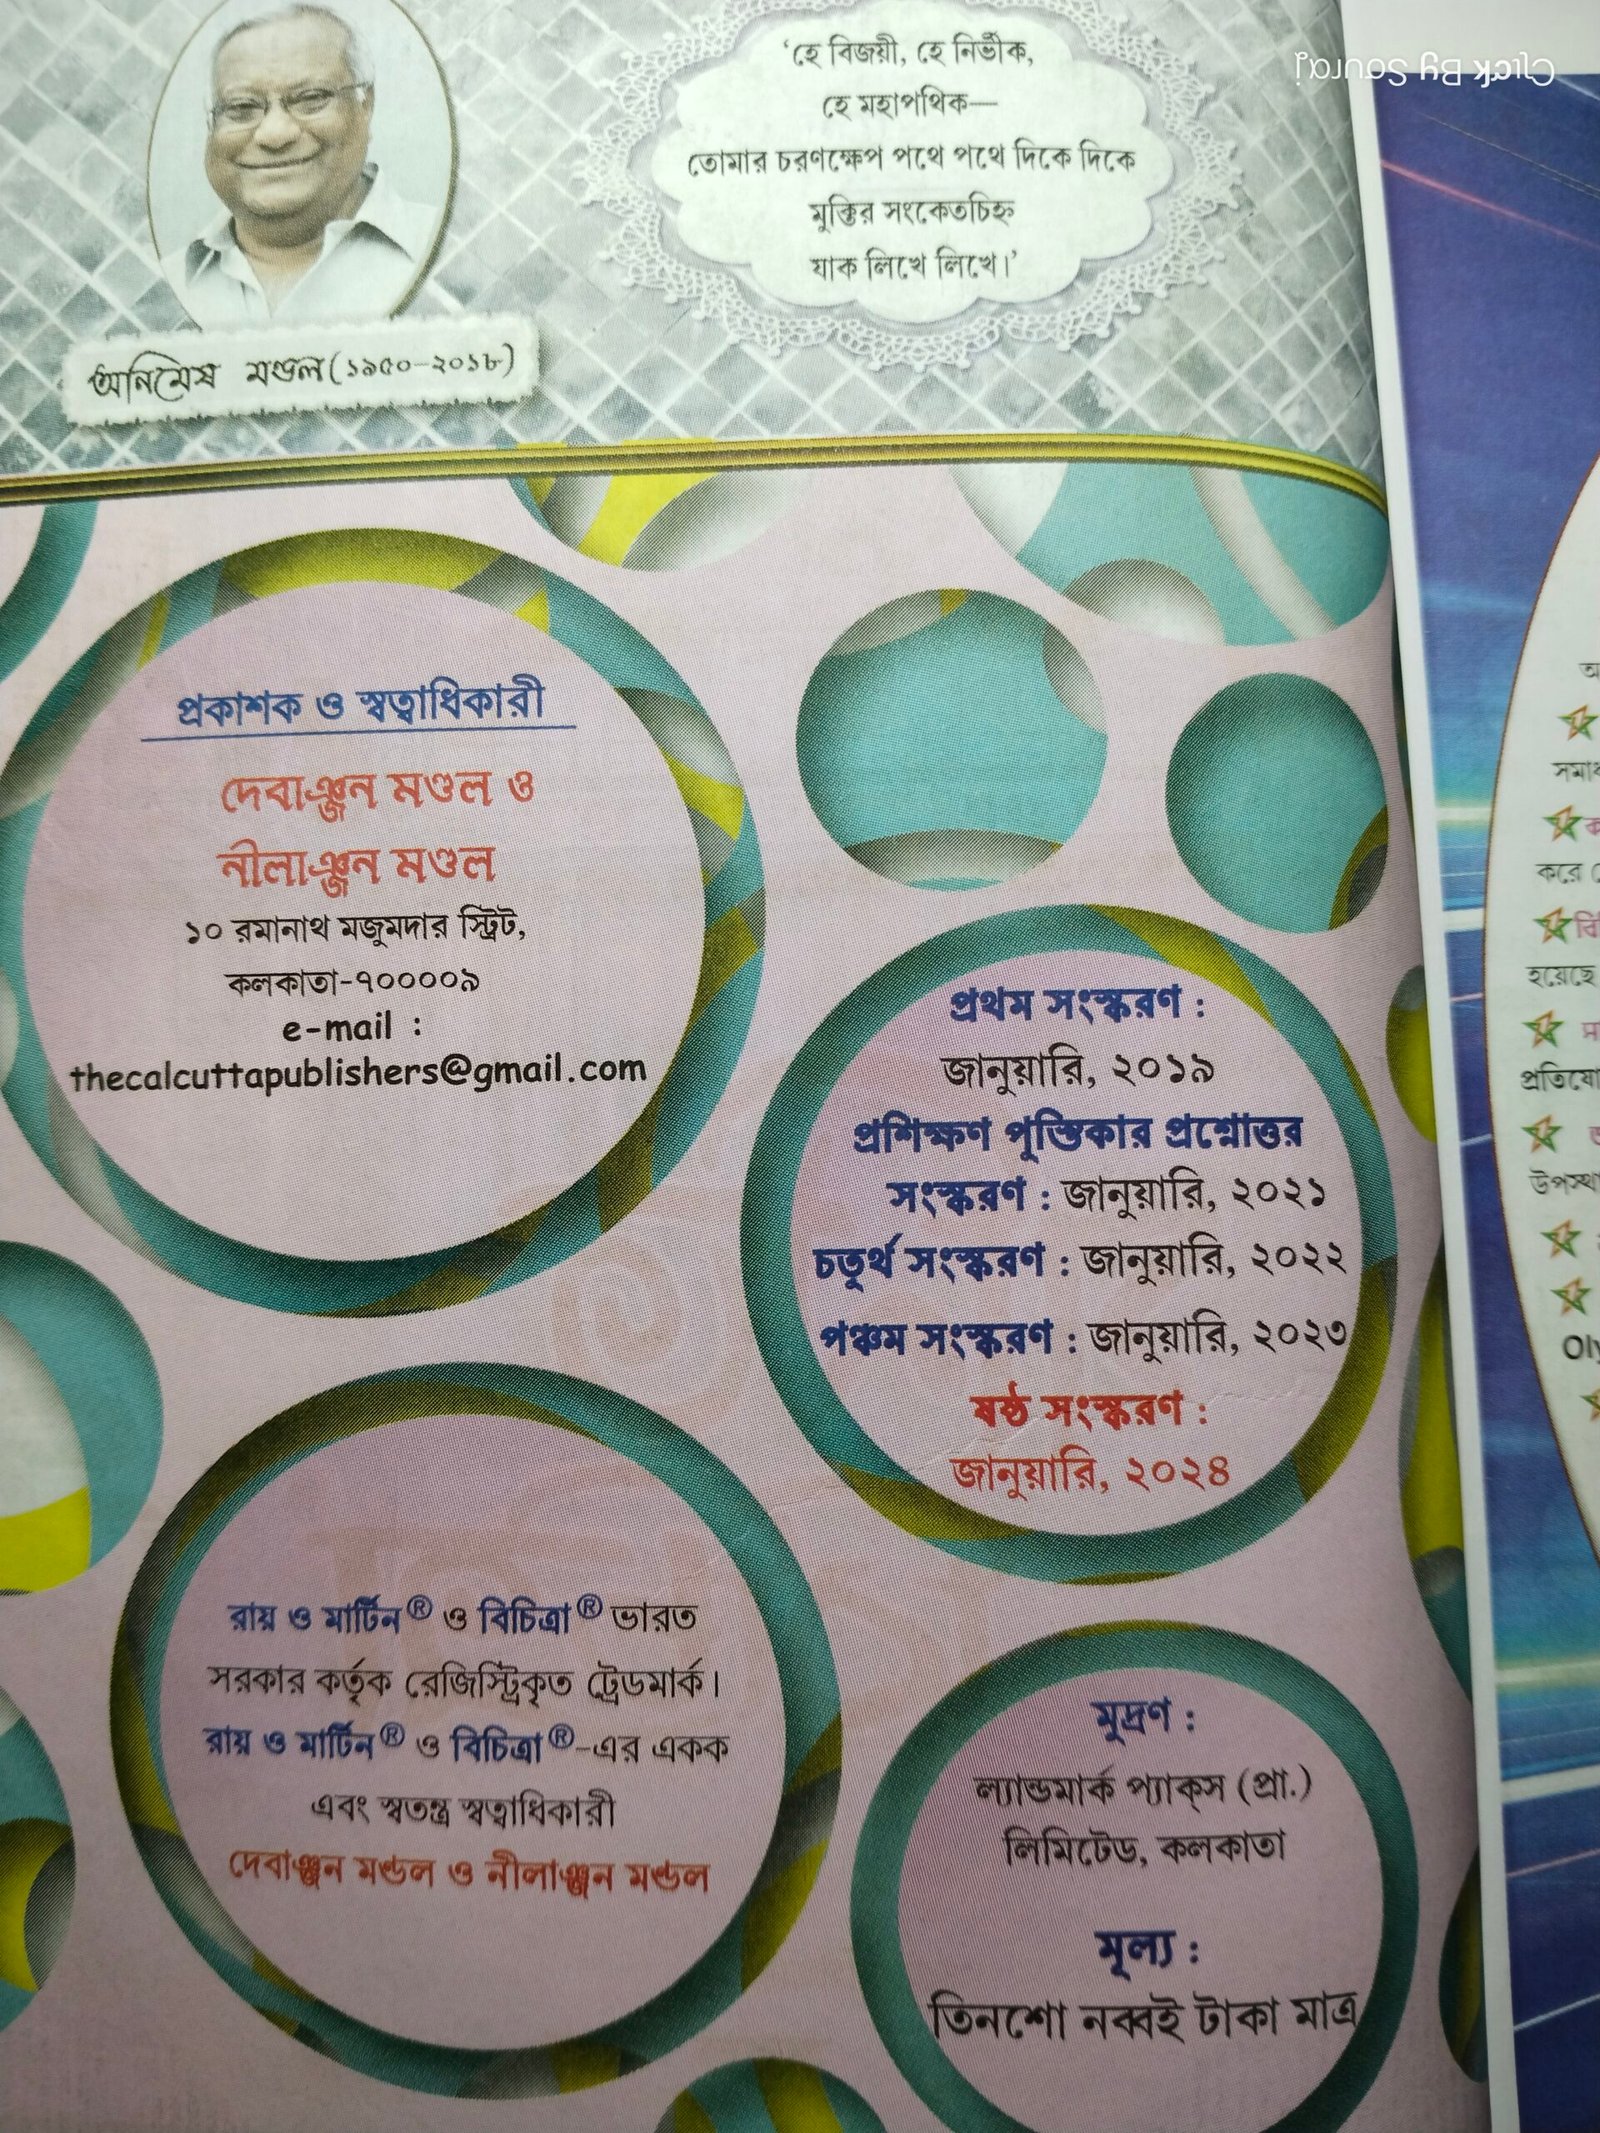 ‘হে বিজয়ী, হে নির্ভীক,
হে মহাপথিক—
তোমার চরণক্ষেপ পথে পথে দিকে দিকে
মুক্তির সংকেতচিহ্ন
যাক লিখে লিখে।’
Click By Souraj
অনিমেষ মণ্ডল (১৯৫০-২০১৮)
প্রকাশক ও স্বত্বাধিকারী
দেবাঞ্জন মণ্ডল ও
নীলাঞ্জন মণ্ডল
১০ রমানাথ মজুমদার স্ট্রিট,
কলকাতা-৭০০০০৯
e-mail :
thecalcuttapublishers@gmail.com
প্রথম সংস্করণ :
জানুয়ারি, ২০১৯
প্রশিক্ষণ পুস্তিকার প্রশ্নোত্তর
সংস্করণ : জানুয়ারি, ২০২১
চতুর্থ সংস্করণ : জানুয়ারি, ২০২২
পঞ্চম সংস্করণ : জানুয়ারি, ২০২৩
ষষ্ঠ সংস্করণ :
জানুয়ারি, ২০২৪
রায় ও মার্টিন® ও বিচিত্রা® ভারত
সরকার কর্তৃক রেজিস্ট্রিকৃত ট্রেডমার্ক।
রায় ও মার্টিন® ও বিচিত্রা®-এর একক
এবং স্বতন্ত্র স্বত্বাধিকারী
দেবাঞ্জন মণ্ডল ও নীলাঞ্জন মণ্ডল
মুদ্রণ :
ল্যান্ডমার্ক প্যাক্‌স (প্রা.)
লিমিটেড, কলকাতা
মূল্য :
তিনশো নব্বই টাকা মাত্র
করে
হয়েছে